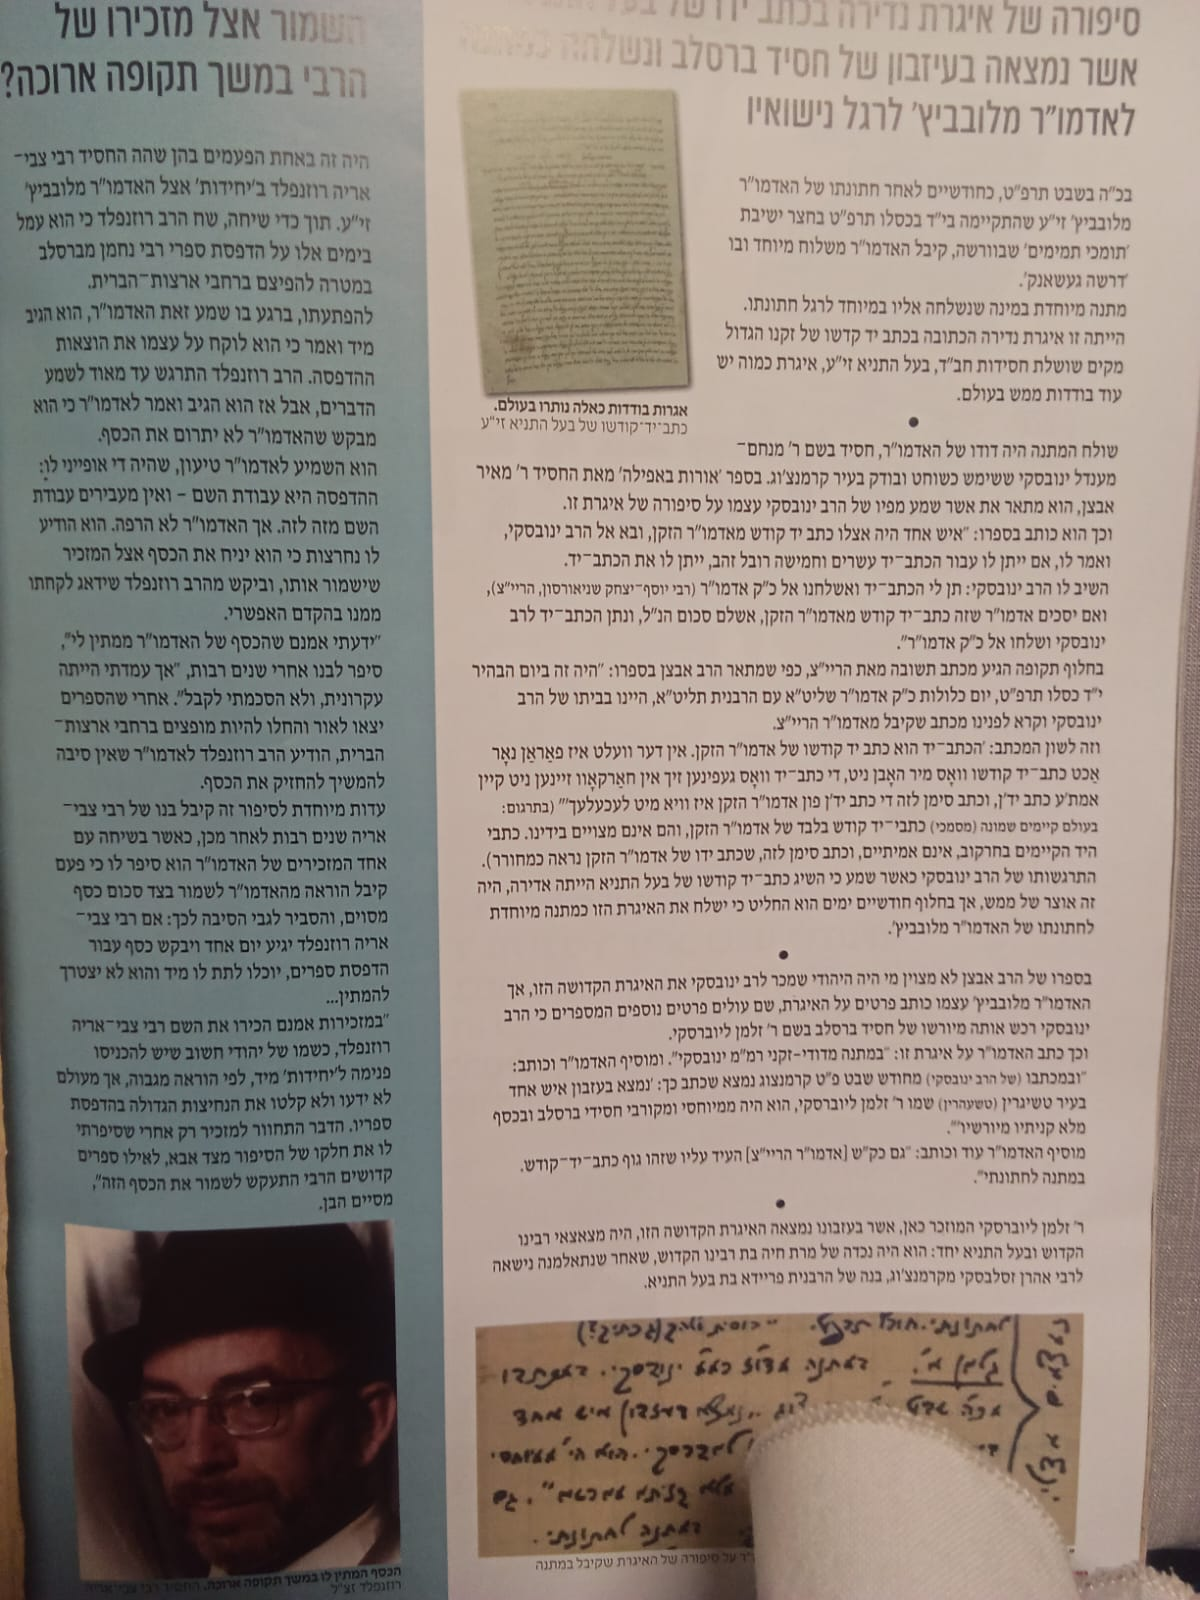 סיפורה של איגרת נדירה בכתב ידו של בעל
אשר נמצאה בעיזבון של חסיד ברסלב ונשלחה
לאדמו"ר מלובביץ' לרגל נישואיו
בכ"ה בשבט תרפ"ט, כחודשיים לאחר חתונתו של האדמו"ר
מלובביץ' זי"ע שהתקיימה בי"ד בכסלו תרפ"ט בחצר ישיבת
'תומכי תמימים' שבוורשה, קיבל האדמו"ר משלוח מיוחד ובו
'דרשה געשאנק'.
מתנה מיוחדת במינה שנשלחה אליו במיוחד לרגל חתונתו.
הייתה זו איגרת נדירה הכתובה בכתב יד קדשו של זקנו הגדול
מקים שושלת חסידות חב"ד, בעל התניא זי"ע, איגרת כמוה יש
עוד בודדות ממש בעולם.
אגרות בודדות כאלה נותרו בעולם.
כתב־יד־קודשו של בעל התניא זי"ע
•
שולח המתנה היה דודו של האדמו"ר, חסיד בשם ר' מנחם־
מענדל ינובסקי ששימש כשוחט ובודק בעיר קרמנצ'וג. בספר 'אורות באפילה' מאת החסיד ר' מאיר
אבצן, הוא מתאר את אשר שמע מפיו של הרב ינובסקי עצמו על סיפורה של איגרת זו.
וכך הוא כותב בספרו: "איש אחד היה אצלו כתב יד קודש מאדמו"ר הזקן, ובא אל הרב ינובסקי,
ואמר לו, אם ייתן לו עבור הכתב־יד עשרים וחמישה רובל זהב, ייתן לו את הכתב־יד.
השיב לו הרב ינובסקי: תן לי הכתב־יד ואשלחנו אל כ"ק אדמו"ר (רבי יוסף־יצחק שניאורסון, הריי"צ),
ואם יסכים אדמו"ר שזה כתב־יד קודש מאדמו"ר הזקן, אשלם סכום הנ"ל, ונתן הכתב־יד לרב
ינובסקי ושלחו אל כ"ק אדמו"ר".
בחלוף תקופה הגיע מכתב תשובה מאת הריי"צ, כפי שמתאר הרב אבצן בספרו: "היה זה ביום הבהיר
י"ד כסלו תרפ"ט, יום כלולות כ"ק אדמו"ר שליט"א עם הרבנית תליט"א, היינו בביתו של הרב
ינובסקי וקרא לפנינו מכתב שקיבל מאדמו"ר הריי"צ.
וזה לשון המכתב: 'הכתב־יד הוא כתב יד קודשו של אדמו"ר הזקן. אין דער וועלט איז פאַראַן נאָר
אַכט כתב־יד קודשו וואָס מיר האָבן ניט, די כתב־יד וואָס געפינען זיך אין חאַרקאָוו זיינען ניט קיין
אמת'ע כתב יד'ן, וכתב סימן לזה די כתב יד'ן פון אדמו"ר הזקן איז וויא מיט לעכעלעך'" (בתרגום:
בעולם קיימים שמונה (מסמכי) כתבי־יד קודש בלבד של אדמו"ר הזקן, והם אינם מצויים בידינו. כתבי
היד הקיימים בחרקוב, אינם אמיתיים, וכתב סימן לזה, שכתב ידו של אדמו"ר הזקן נראה כמחורר).
התרגשותו של הרב ינובסקי כאשר שמע כי השיג כתב־יד קודשו של בעל התניא הייתה אדירה, היה
זה אוצר של ממש, אך בחלוף חודשיים ימים הוא החליט כי ישלח את האיגרת הזו כמתנה מיוחדת
לחתונתו של האדמו"ר מלובביץ'.
•
בספרו של הרב אבצן לא מצוין מי היה היהודי שמכר לרב ינובסקי את האיגרת הקדושה הזו, אך
האדמו"ר מלובביץ' עצמו כותב פרטים על האיגרת, שם עולים פרטים נוספים המספרים כי הרב
ינובסקי רכש אותה מיורשו של חסיד ברסלב בשם ר' זלמן ליוברסקי.
וכך כתב האדמו"ר על איגרת זו: "במתנה מדודי-זקני רמ"מ ינובסקי". ומוסיף האדמו"ר וכותב:
"ובמכתבו (של הרב ינובסקי) מחודש שבט פ"ט קרמנצוג נמצא שכתב כך: 'נמצא בעזבון איש אחד
בעיר טשיגרין (טשעהרין) שמו ר' זלמן ליוברסקי, הוא היה ממיוחסי ומקורבי חסידי ברסלב ובכסף
מלא קניתיו מיורשיו'".
מוסיף האדמו"ר עוד וכותב: "גם כק"ש [אדמו"ר הריי"צ] העיד עליו שזהו גוף כתב־יד־קודש.
במתנה לחתונתי".
•
ר' זלמן ליוברסקי המוזכר כאן, אשר בעזבונו נמצאה האיגרת הקדושה הזו, היה מצאצאי רבינו
הקדוש ובעל התניא יחד: הוא היה נכדה של מרת חיה בת רבינו הקדוש, שאחר שנתאלמנה נישאה
לרבי אהרן זסלבסקי מקרמנצ'וג, בנה של הרבנית פריידא בת בעל התניא.
לחתונתי.
במתנה
ינובסקי.
נמצא בעזבון איש אחד
גם
במתנה לחתונתי.
על סיפורה של האיגרת שקיבל במתנה
השמור אצל מזכירו של
הרבי במשך תקופה ארוכה?
היה זה באחת הפעמים בהן שהה החסיד רבי צבי־
אריה רוזנפלד ב'יחידות' אצל האדמו"ר מלובביץ'
זי"ע. תוך כדי שיחה, שח הרב רוזנפלד כי הוא עמל
בימים אלו על הדפסת ספרי רבי נחמן מברסלב
במטרה להפיצם ברחבי ארצות־הברית.
להפתעתו, ברגע בו שמע זאת האדמו"ר, הוא הגיב
מיד ואמר כי הוא לוקח על עצמו את הוצאות
ההדפסה. הרב רוזנפלד התרגש עד מאוד לשמע
הדברים, אבל אז הוא הגיב ואמר לאדמו"ר כי הוא
מבקש שהאדמו"ר לא יתרום את הכסף.
הוא השמיע לאדמו"ר טיעון, שהיה די אופייני לו:
ההדפסה היא עבודת השם – ואין מעבירים עבודת
השם מזה לזה. אך האדמו"ר לא הרפה. הוא הודיע
לו נחרצות כי הוא יניח את הכסף אצל המזכיר
שישמור אותו, וביקש מהרב רוזנפלד שידאג לקחתו
ממנו בהקדם האפשרי.
"ידעתי אמנם שהכסף של האדמו"ר ממתין לי",
סיפר לבנו אחרי שנים רבות, "אך עמדתי הייתה
עקרונית, ולא הסכמתי לקבל". אחרי שהספרים
יצאו לאור והחלו להיות מופצים ברחבי ארצות־
הברית, הודיע הרב רוזנפלד לאדמו"ר שאין סיבה
להמשיך להחזיק את הכסף.
עדות מיוחדת לסיפור זה קיבל בנו של רבי צבי־
אריה שנים רבות לאחר מכן, כאשר בשיחה עם
אחד המזכירים של האדמו"ר הוא סיפר לו כי פעם
קיבל הוראה מהאדמו"ר לשמור בצד סכום כסף
מסוים, והסביר לגבי הסיבה לכך: אם רבי צבי־
אריה רוזנפלד יגיע יום אחד ויבקש כסף עבור
הדפסת ספרים, יוכלו לתת לו מיד והוא לא יצטרך
להמתין...
"במזכירות אמנם הכירו את השם רבי צבי־אריה
רוזנפלד, כשמו של יהודי חשוב שיש להכניסו
פנימה ל'יחידות' מיד, לפי הוראה מגבוה, אך מעולם
לא ידעו ולא קלטו את הנחיצות הגדולה בהדפסת
ספריו. הדבר התחוור למזכיר רק אחרי שסיפרתי
לו את חלקו של הסיפור מצד אבא, לאילו ספרים
קדושים הרבי התעקש לשמור את הכסף הזה",
מסיים הבן.
הכסף המתין לו במשך תקופה ארוכה. החסיד רבי צבי־אריה
רוזנפלד זצ"ל